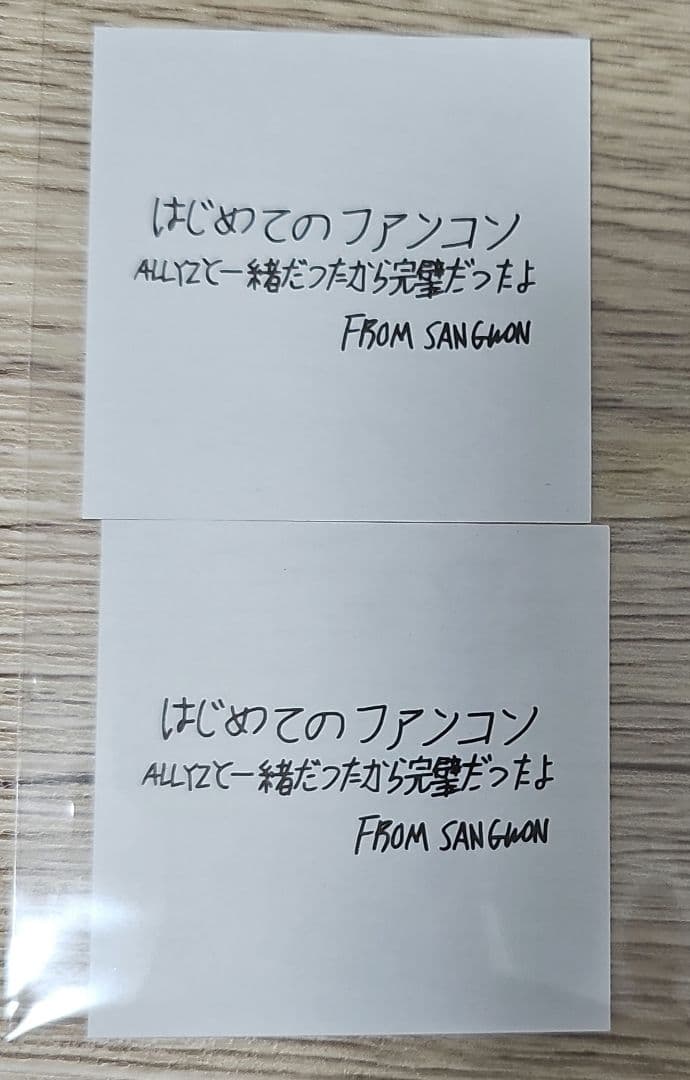 はじめてのファンコン
ALLYZと一緒だったから完璧だったよ
FROM SANGWON
はじめてのファンコン
ALLYZと一緒だったから完璧だったよ
FROM SANGWON